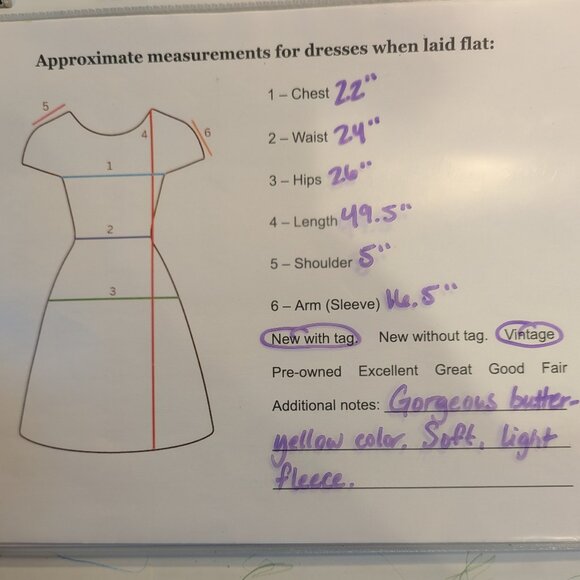 Approximate measurements for dresses when laid flat:
1 – Chest 22"
2 – Waist 24"
3 – Hips 26"
4 – Length 49.5"
5 – Shoulder 5"
6 – Arm (Sleeve) 16.5"
New with tag. New without tag. Vintage
Pre-owned Excellent Great Good Fair
Additional notes: Gorgeous butter-
yellow color. Soft, light
fleece.
5
4
6
1
2
3